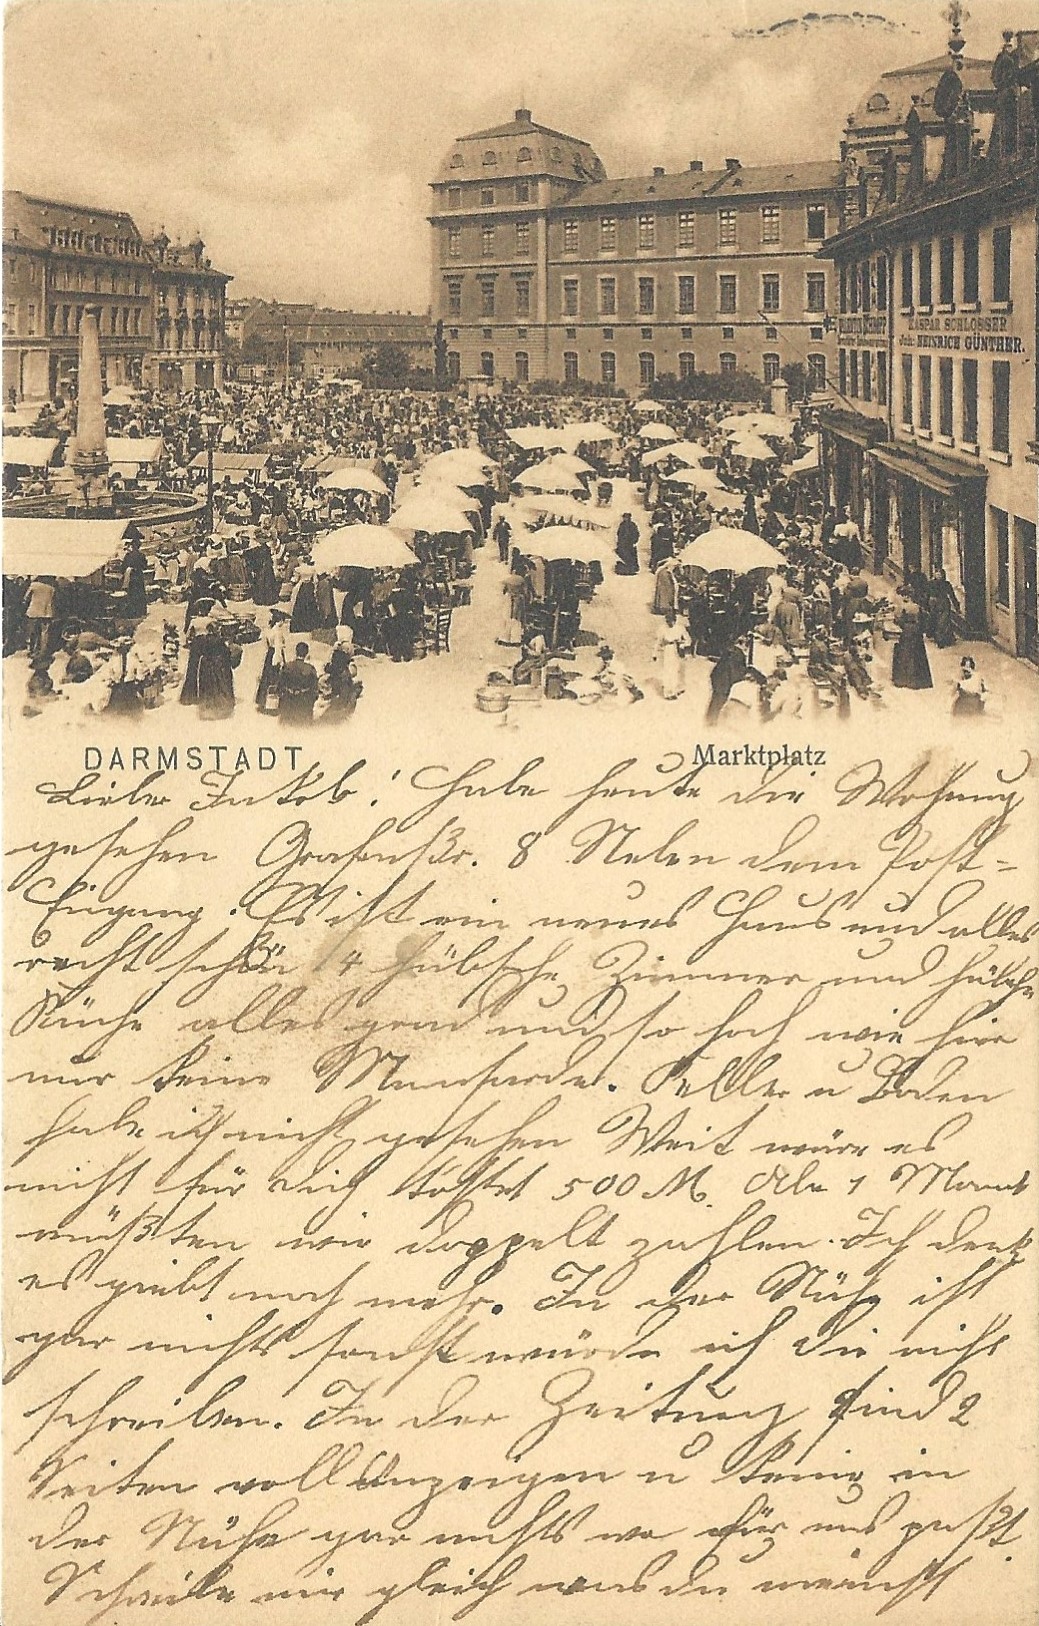 KASPAR SCHLOSSER
Inh: HEINRICH GÜNTHER.
DARMSTADT
Marktplatz
Lieber Jakob! Habe heute die Wohnung
gesehen Grafenstr. 8 Neben dem Post-
Eingang. Es ist ein neues Haus und alles
recht schön 4 hübsche Zimmer und hübsche
Küche alles grad und so hoch wie hier
nur keine Mansarde. Keller u Boden
habe ich nicht gesehen Weit wäre es
nicht für dich kostet 500 M. Aber 1 Monat
müßten wir doppelt zahlen. Ich denk
es giebt noch mehr. In der Nähe ist
gar nichts sonst würde ich dir nicht
schreiben. In der Zeitung sind 2
Seiten voll Anzeigen u keine in
der Nähe gar nichts wo für uns paßt.
Schreibe mir gleich was du meinst